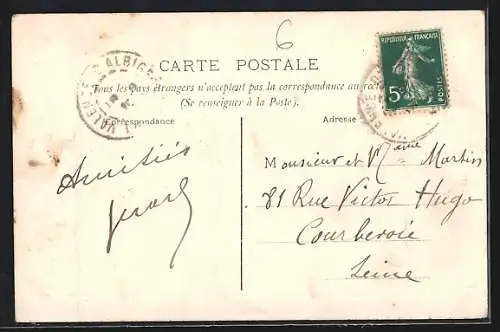 6
CARTE POSTALE
Tous les pays étrangers n'acceptent pas la correspondance au recto
(Se renseigner à la Poste).
Correspondance
Adresse
REPUBLIQUE FRANÇAISE
5c
POSTES
VALENCE D'ALBIGEOIS
Amitiés
Monsieur et Mme Martin
81 Rue Victor Hugo
Courbevoie
Seine